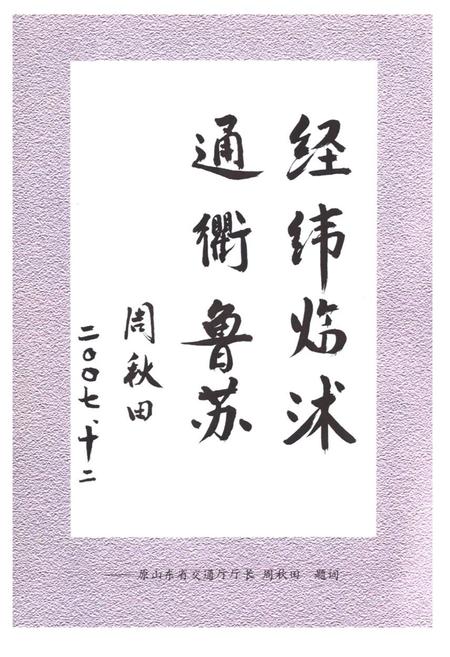 经纬临沭
通衢鲁苏
周秋田
二〇〇七、十二
——原山东省交通厅厅长 周秋田 题词